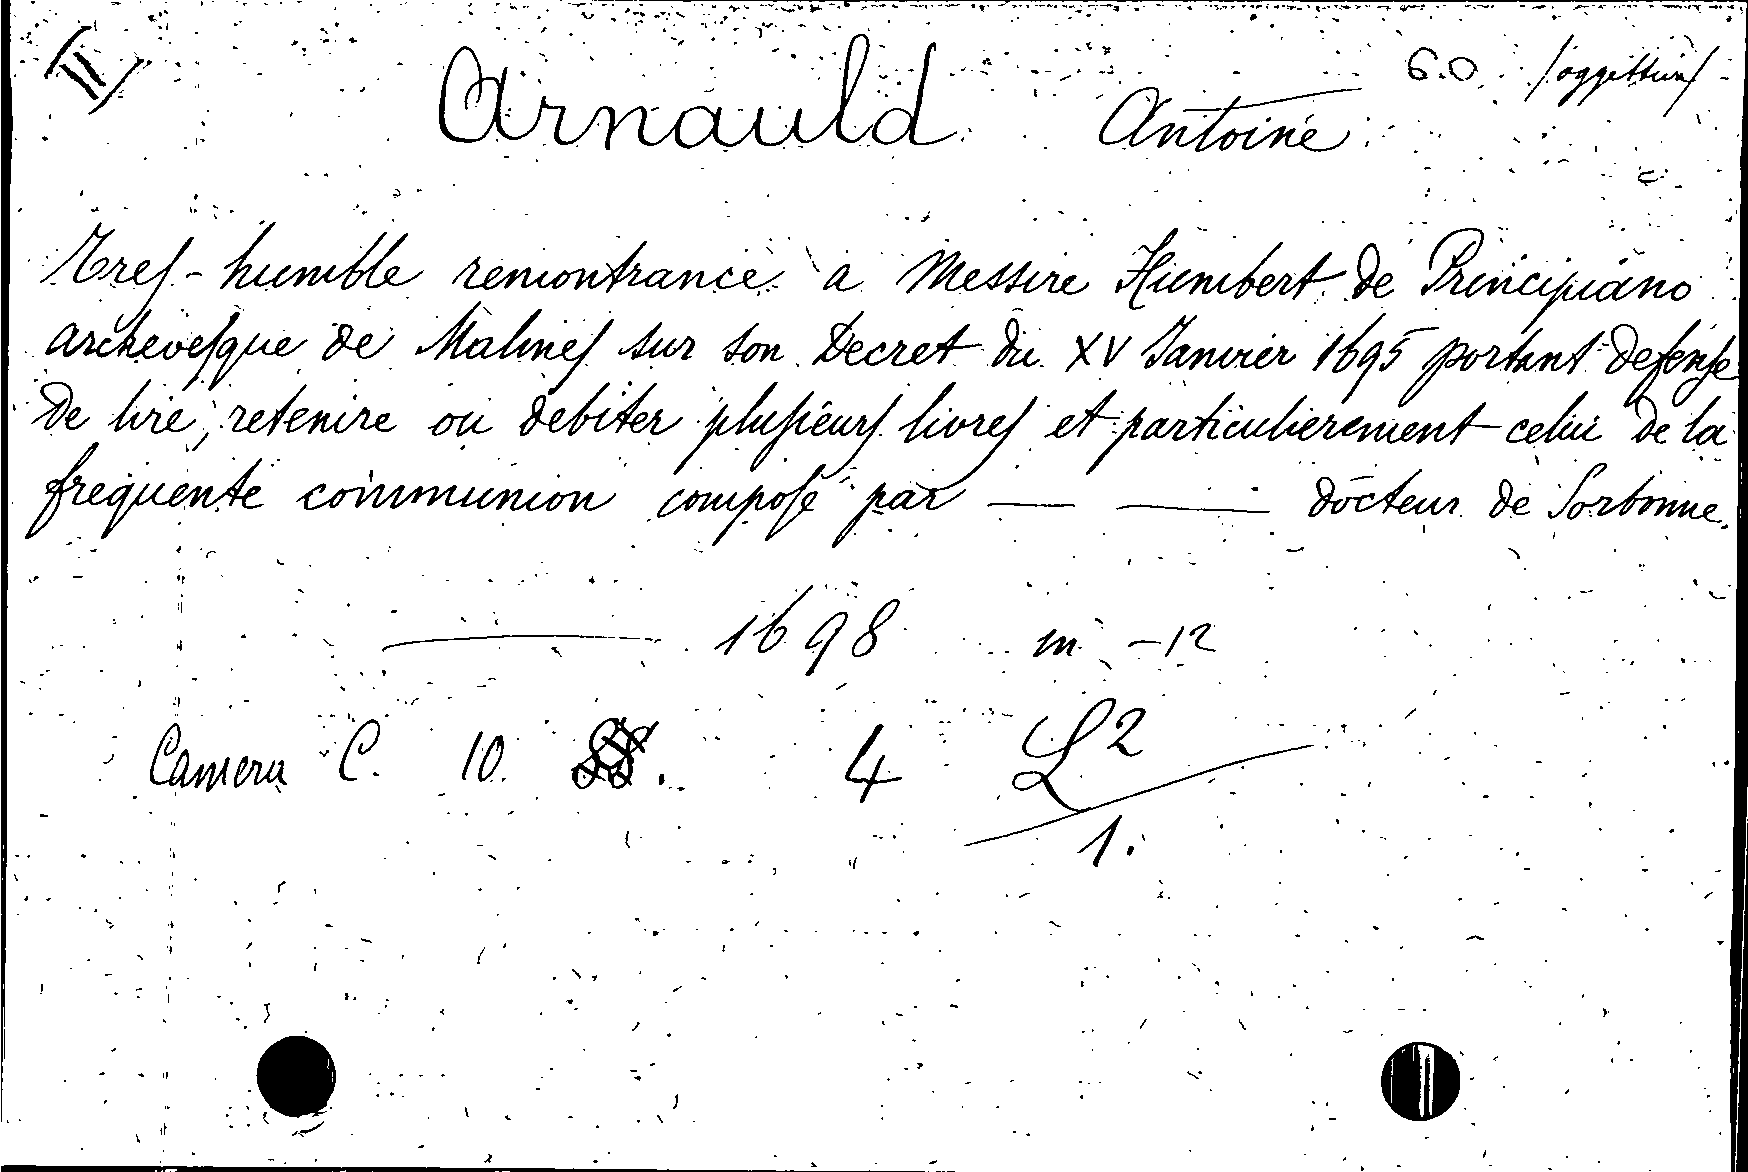 II
6.0. soggettius
Arnauld Antoine
Tres-humble remontrance a Messire Humbert de Principiano
archevesque de Malines sur son Decret du XV Janvier 1695 portant defense
de lire, retenire ou debiter plusieurs livres et particulierement celui de la
frequente communion composé par — — docteur de Sorbonne.
— 1698 in -12
Camera C. 10. 4 L2
1.